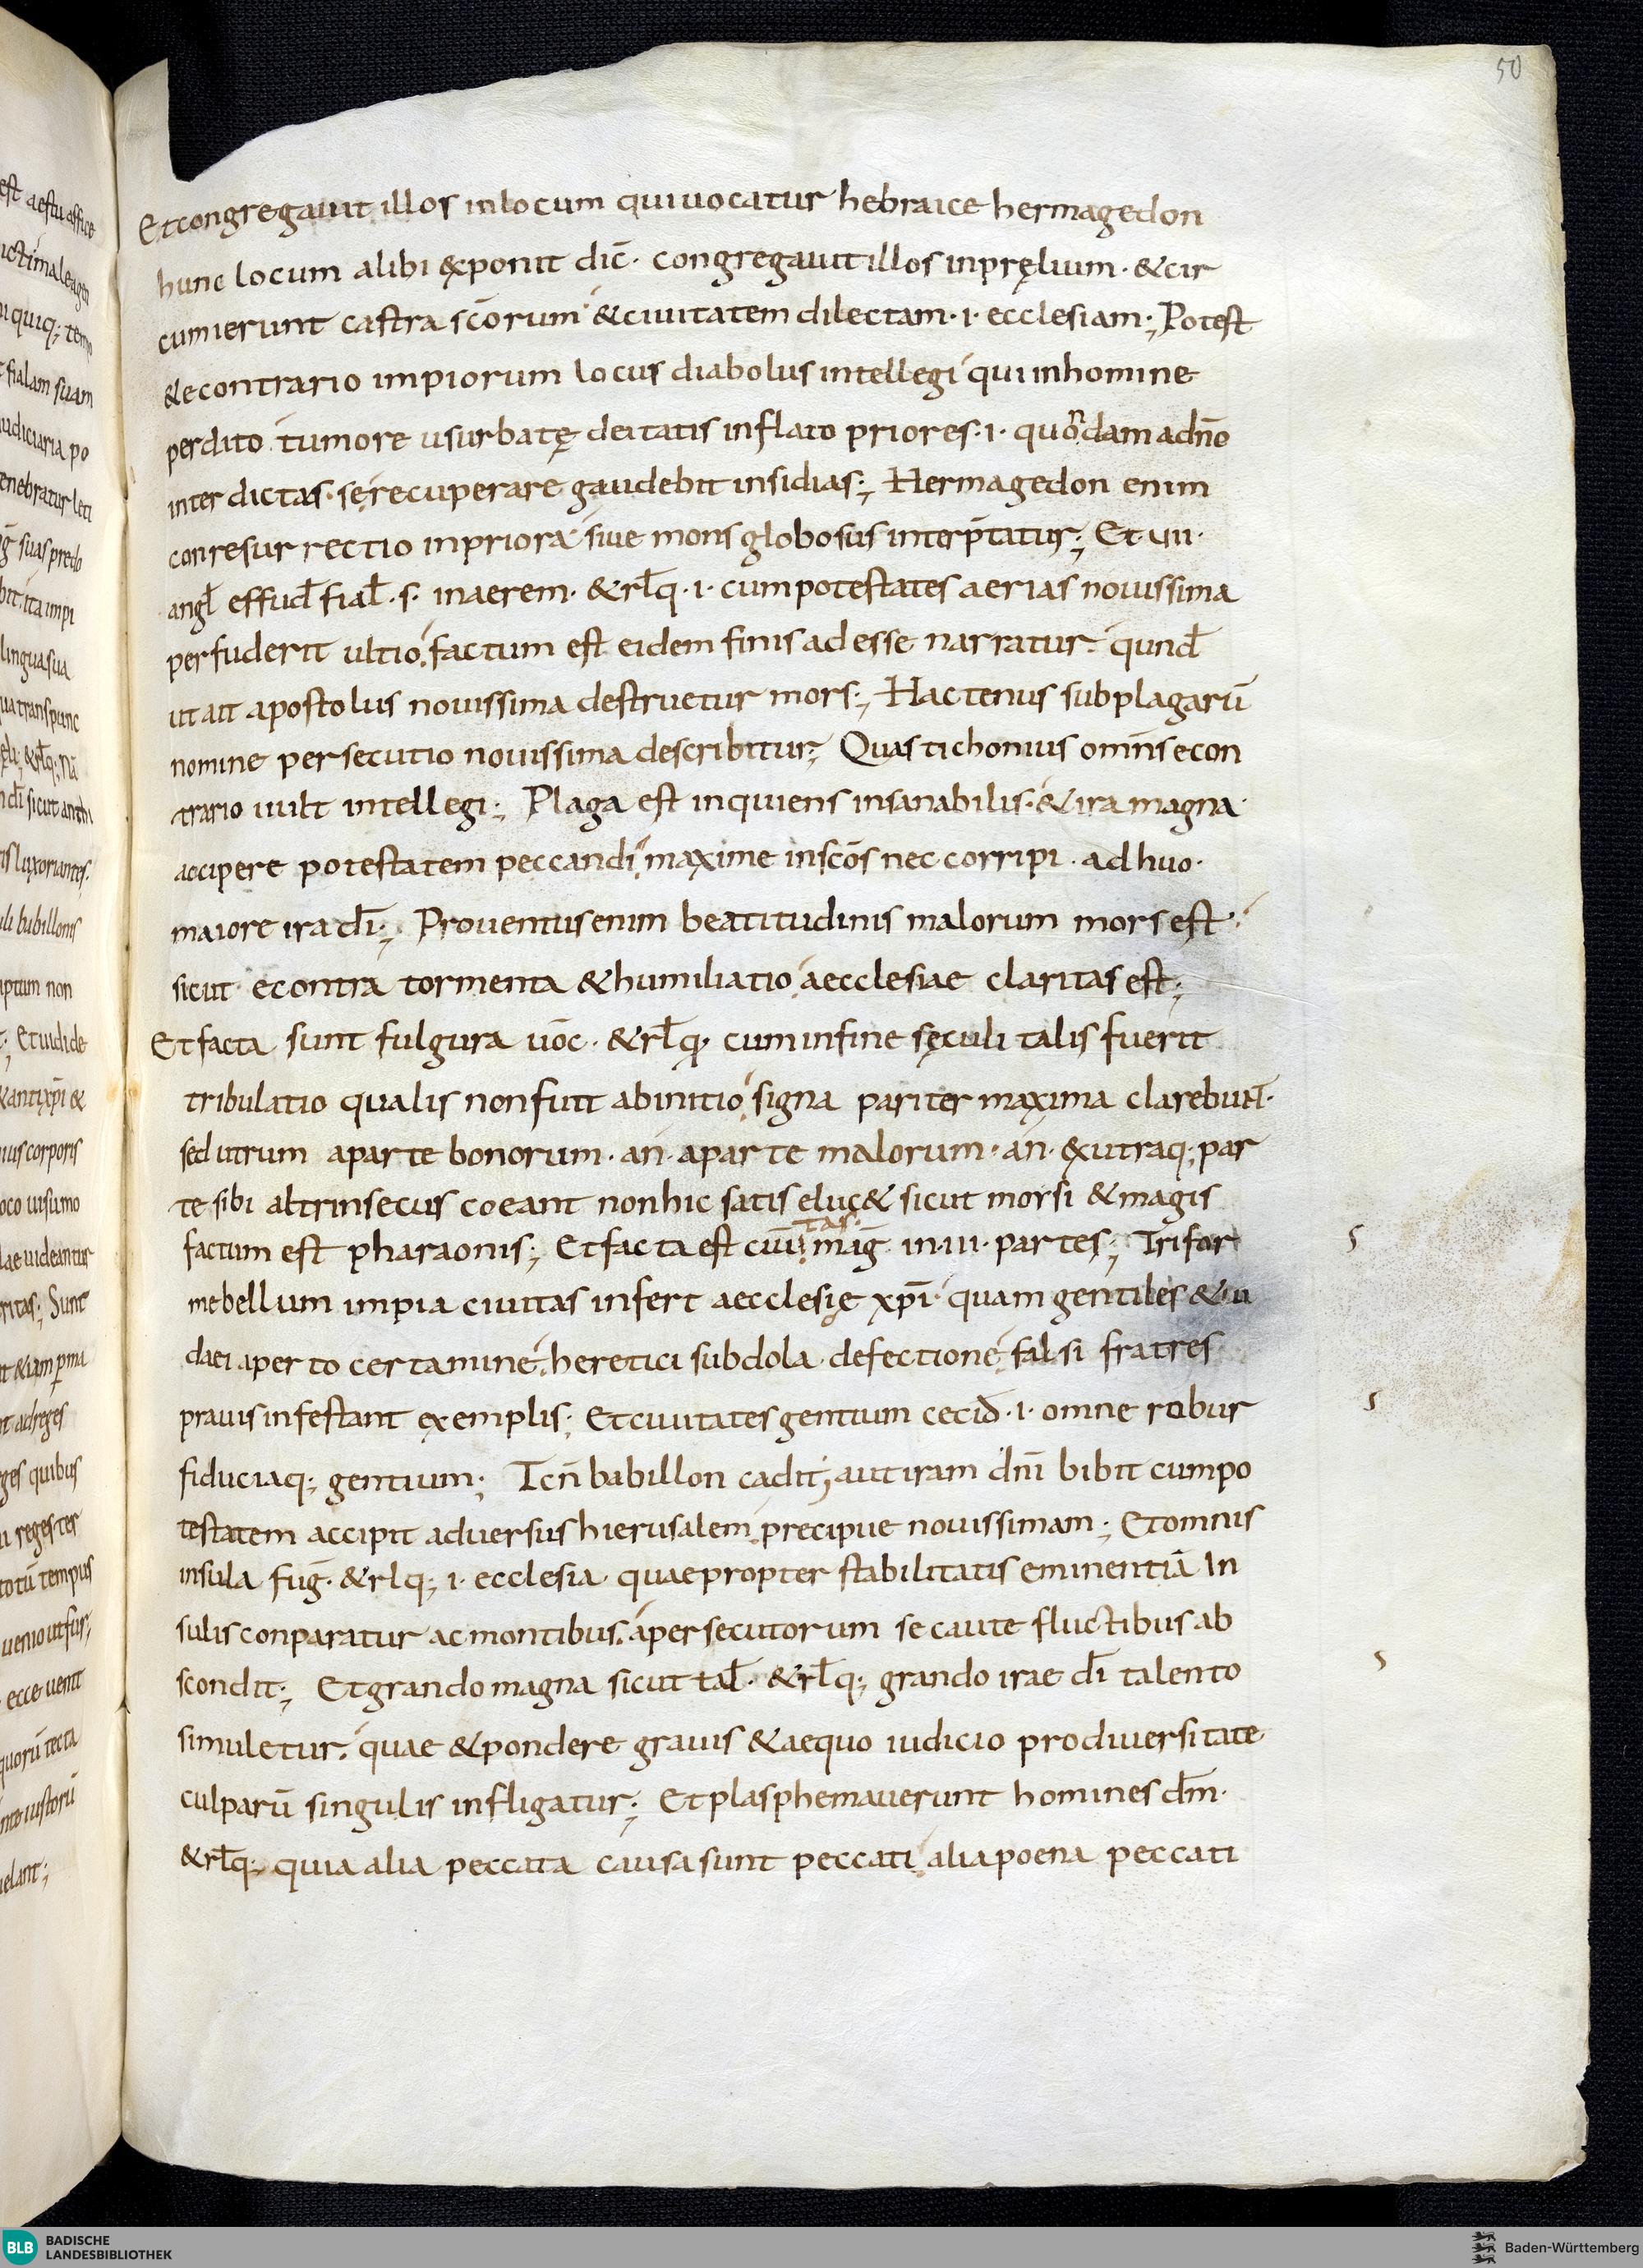 50
Etcongregauit illos inlocum quiuocatur hebraice hermagedon
hunc locum alibi &xponit dic̄· congregauit illos inpręlium· &cir
cumierunt castra sc̄orum &ciuitatem dilectam· i· ecclesiam·; Potest
&econtrario impiorum locus diabolus intellegi quiinhomine
perdito tumore usurbatę deitatis inflato priores· i· quondam adn̄o
interdictas· serecuperare gaudebit insidias·; Hermagedon enim
conresurrectio inpriora siue mons globosus interp̄tatur·; Et· uii·
angł effud̄ fiał· s· inaerem· &rłq· i· cumpotestates aerias nouissima
perfuderit ultio, factum est eidem finis adesse narratur· qund̄
ut ait apostolus nouissima destruetur mors·; Hactenus subplagarū
nomine persecutio nouissima describitur·; Quas tichonius omn̄s econ
trario uult intellegi·; Plaga est inquiens insanabilis· &ira magna·
accipere potestatem peccandi maxime insc̄os nec corripi· adhuo·
maiore ira dī·; Prouentus enim beatitudinis malorum mors est·
sicut econtra tormenta &humiliatio aecclesiae claritas est·;
Et facta sunt fulgura uōc· &rłq· cuminfine sęculi talis fuerit
tribulatio qualis nonfuit abinitio signa pariter maxima clarebunt̄·
sed utrum aparte bonorum· an· aparte malorum· an· &xutraq; par
te sibi altrinsecus coeant nonhic satis eluc& sicut morsi &magis
factum est pharaonis·; Et facta est ciūi tas māg in· iii· partes·; Trifor
mebellum impia ciuitas infert aecclesię xp̄i quam gentiles &iu
daei aperto certamine, heretici subdola defectione falsi fratres
prauis infestant exemplis·; Et ciuitates gentium cecid̄· i· omne robur
fiduciaq; gentium·; Tcn̄ babillon cadit, aut iram dn̄i bibit cumpo
testatem accipit aduersus hierusalem precipue nouissimam·; Et omnis
insula fuḡ· &rlq·; i· ecclesia quaepropter stabilitatis eminentiā in
sulis conparatur ac montibus· apersecutorum se caute fluctibus ab
scondit·; Et grando magna sicut tał· &rłq·; grando irae dī talento
simuletur· quae &pondere grauis &aequo iudicio prodiuersitate
culparū singulis infligatur·; Et plasphemauerunt homines dm̄·
&rłq·; quia alia peccata causa sunt peccati alia poena peccati
s
s
s
BLB BADISCHE
LANDESBIBLIOTHEK
Baden-Württemberg